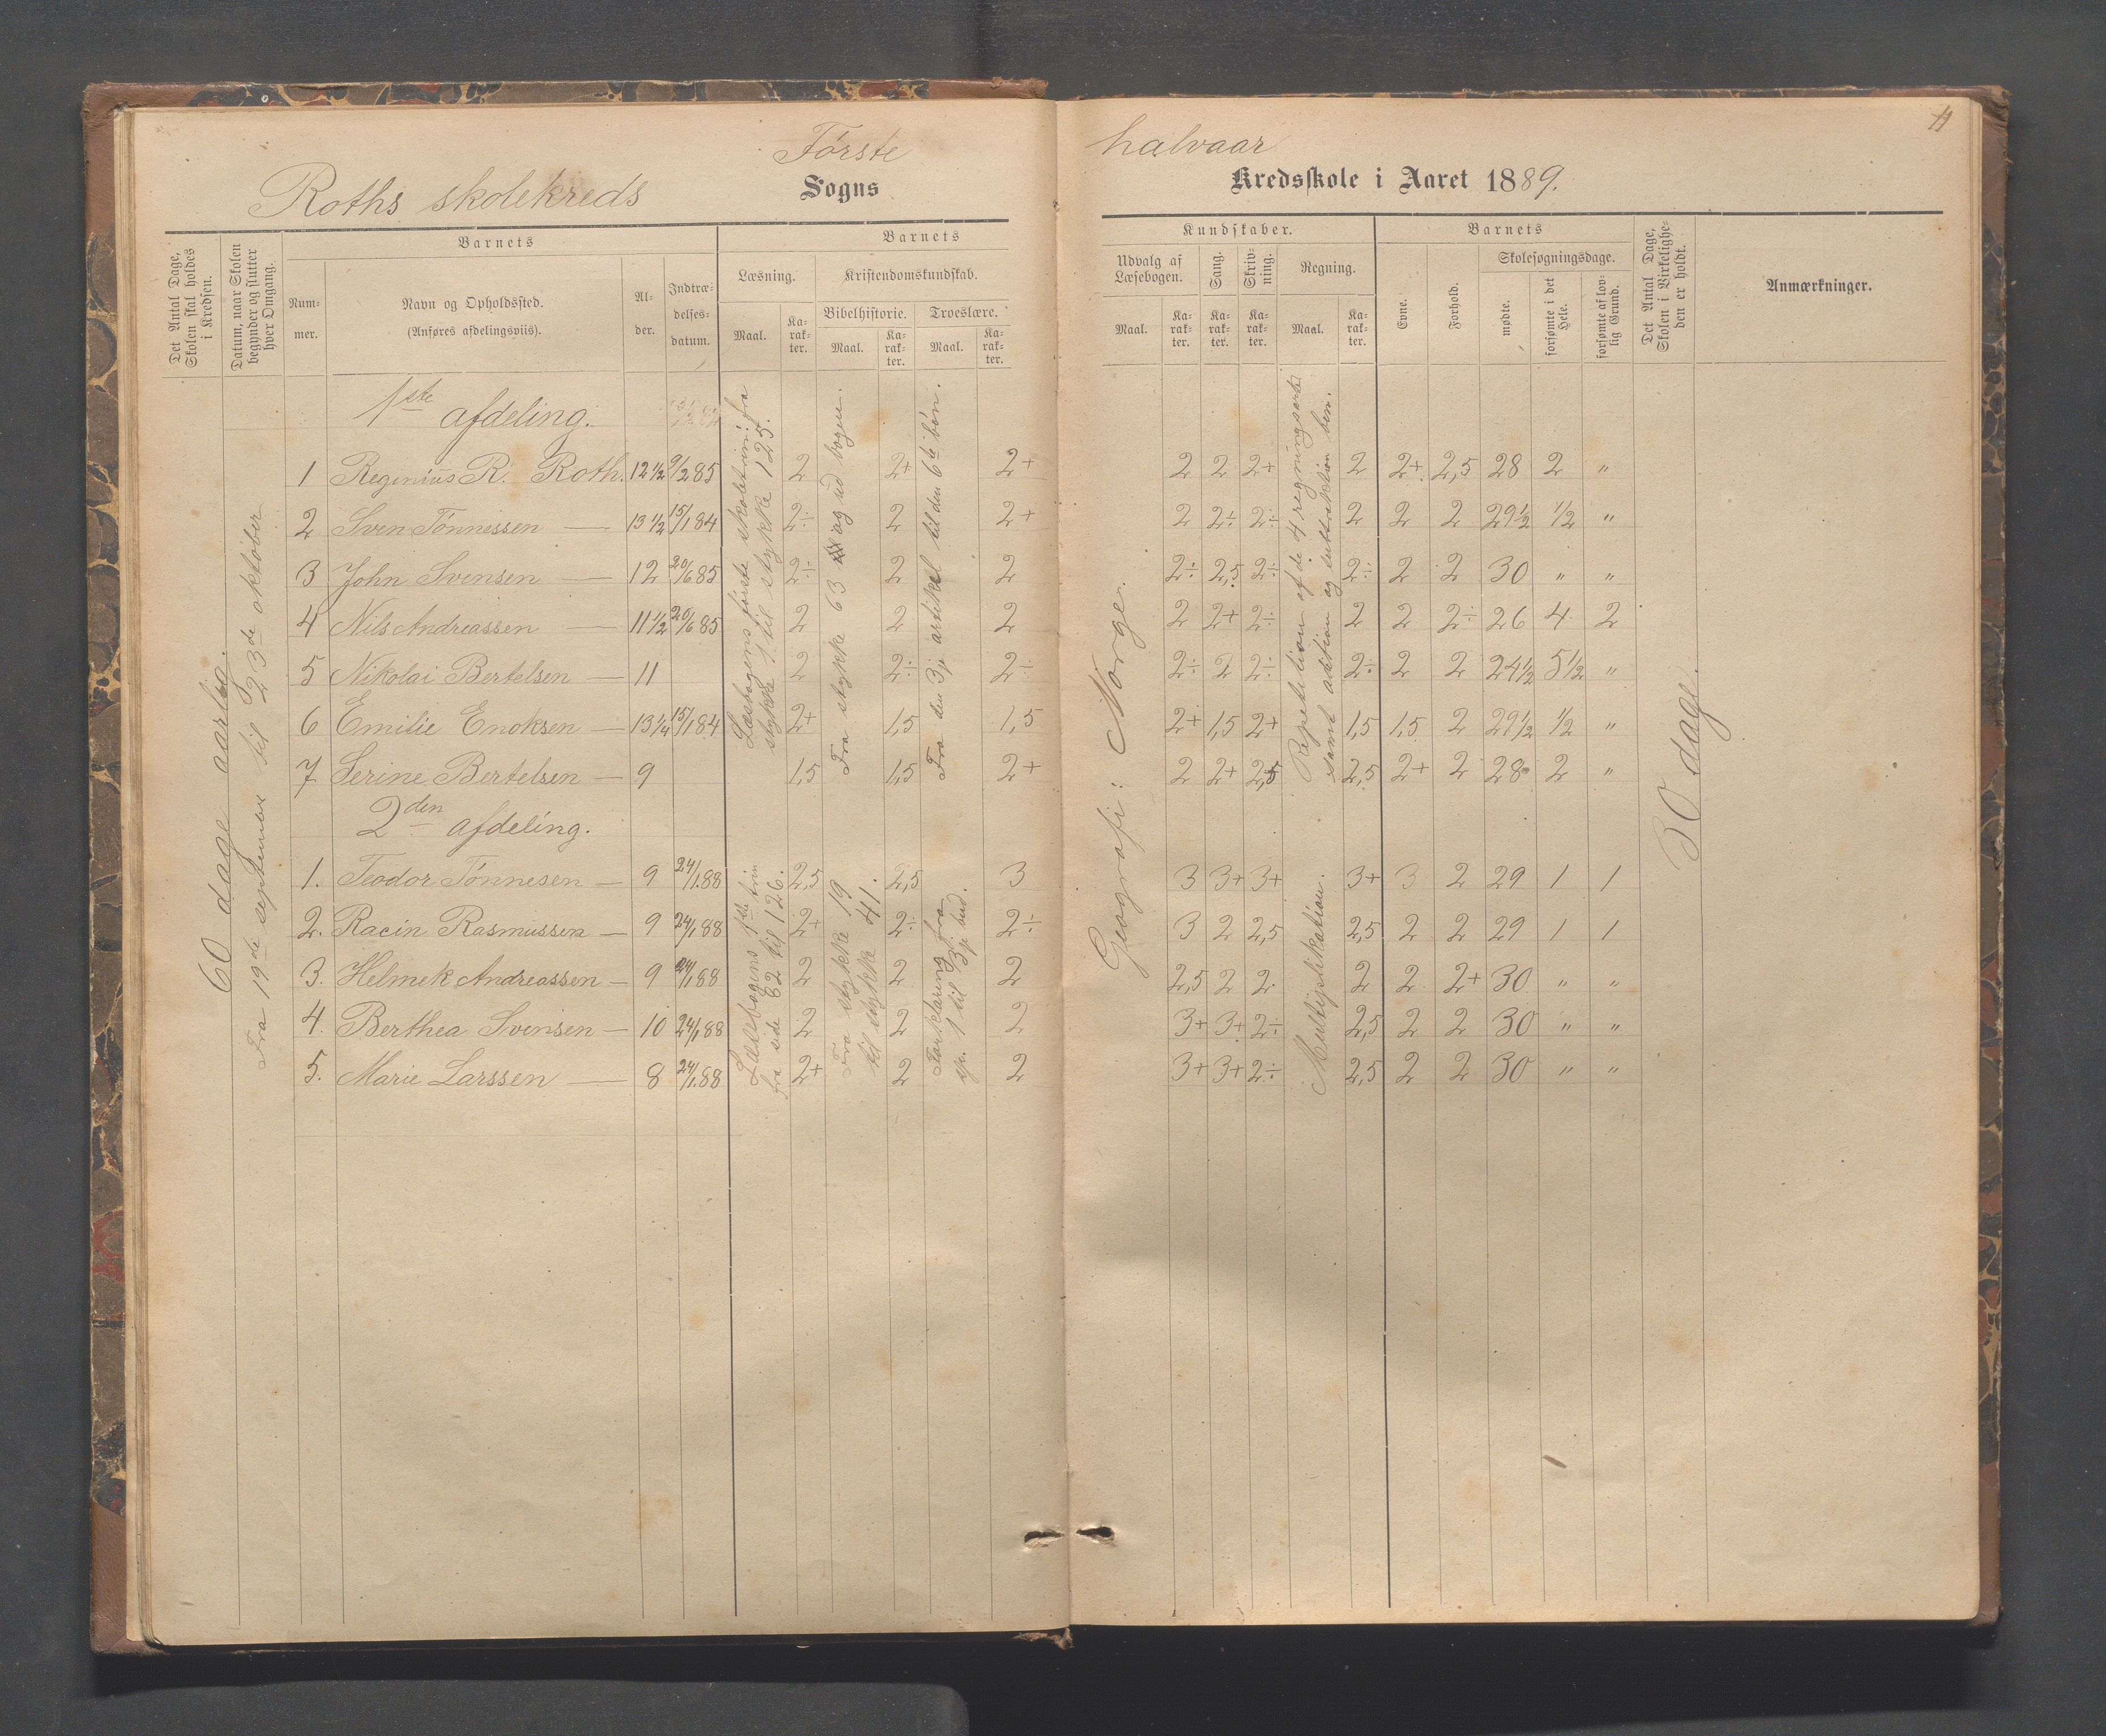 Første halvaar
11
Roths skolekreds Sogns Kredsskole i Aaret 1889.
Det Antal Dage, Skolen skal holdes i Kredsen.
Datum, naar Skolen begynder og slutter hver Omgang.
Barnets
Nummer.
Navn og Opholdssted.
(Anføres afdelingsviis).
Alder.
Indtrædelsesdatum.
Barnets
Læsning.
Maal.
Karakter.
Kristendomskundskab.
Bibelhistorie.
Maal.
Karakter.
Troeslære.
Maal.
Karakter.
Kundskaber.
Udvalg af Læsebogen.
Maal.
Karakter.
Sang.
Karakter.
Skrivning.
Karakter.
Regning.
Maal.
Karakter.
Barnets
Evne.
Forhold.
Skolesøgningsdage.
mødte.
forsømte i det Hele.
forsømte af lovlig Grund.
Det Antal Dage, Skolen i Virkeligheden er holdt.
Anmærkninger.
60 dage aarlig.
Fra 19de september til 23de oktober
1ste afdeling.
1 Reginius R. Roth. 12 1/2 9/2 85 2 2+ 2+ 2 2 2+ 2 2+ 2,5 28 2 "
2 Sven Tønnessen — 13 1/2 15/1 84 2÷ 2 2+ 2 2÷ 2÷ 2 2 2 29 1/2 1/2 "
3 John Svensen — 12 20/6 85 2÷ 2 2 2÷ 2,5 2÷ 2÷ 2 2 30 " "
4 Nils Andreassen — 11 1/2 20/6 85 2 2 2 2 2+ 2÷ 2 2 2÷ 26 4 2
5 Nikolai Bertelsen — 11 2 2÷ 2÷ 2÷ 2 2÷ 2÷ 2 2 24 1/2 5 1/2 "
6 Emilie Enoksen — 13 1/4 15/1 84 2+ 1,5 1,5 2+ 1,5 2+ 1,5 1,5 2 29 1/2 1/2 "
7 Serine Bertelsen — 9 1,5 1,5 2+ 2 2+ 2,5 2,5 2+ 2 28 2 "
Læsbogens første skoletrin: fra stykke 1 til stykke 125.
Fra stykke 63 og ud bogen.
Fra den 3je artikel til den 6te bøn.
Geografi: Norge.
Repetition af de 4 regningsarter samt adition og suttraktion ben.
2den afdeling.
1. Teodor Tønnesen — 9 24/1 88 2,5 2,5 3 3 3+ 3+ 3+ 3 2 29 1 1
2. Racin Rasmussen — 9 24/1 88 2+ 2÷ 2÷ 3 2 2,5 2,5 2 2 29 1 1
3. Helmek Andreassen — 9 24/1 88 2 2 2 2,5 2 2 2 2 2+ 30 " "
4. Berthea Svensen — 10 24/1 88 2 2 2 3+ 3+ 2÷ 2,5 2 2 30 " "
5. Marie Larssen — 8 24/1 88 2+ 2 2 3+ 3+ 2÷ 2,5 2 2 30 " "
Læsebogens 1ste trin fra side 82 til 126.
Fra stykke 19 til stykke 41.
Forklaring fra 1 til 3je bud.
Multiplikation.
30 dage.